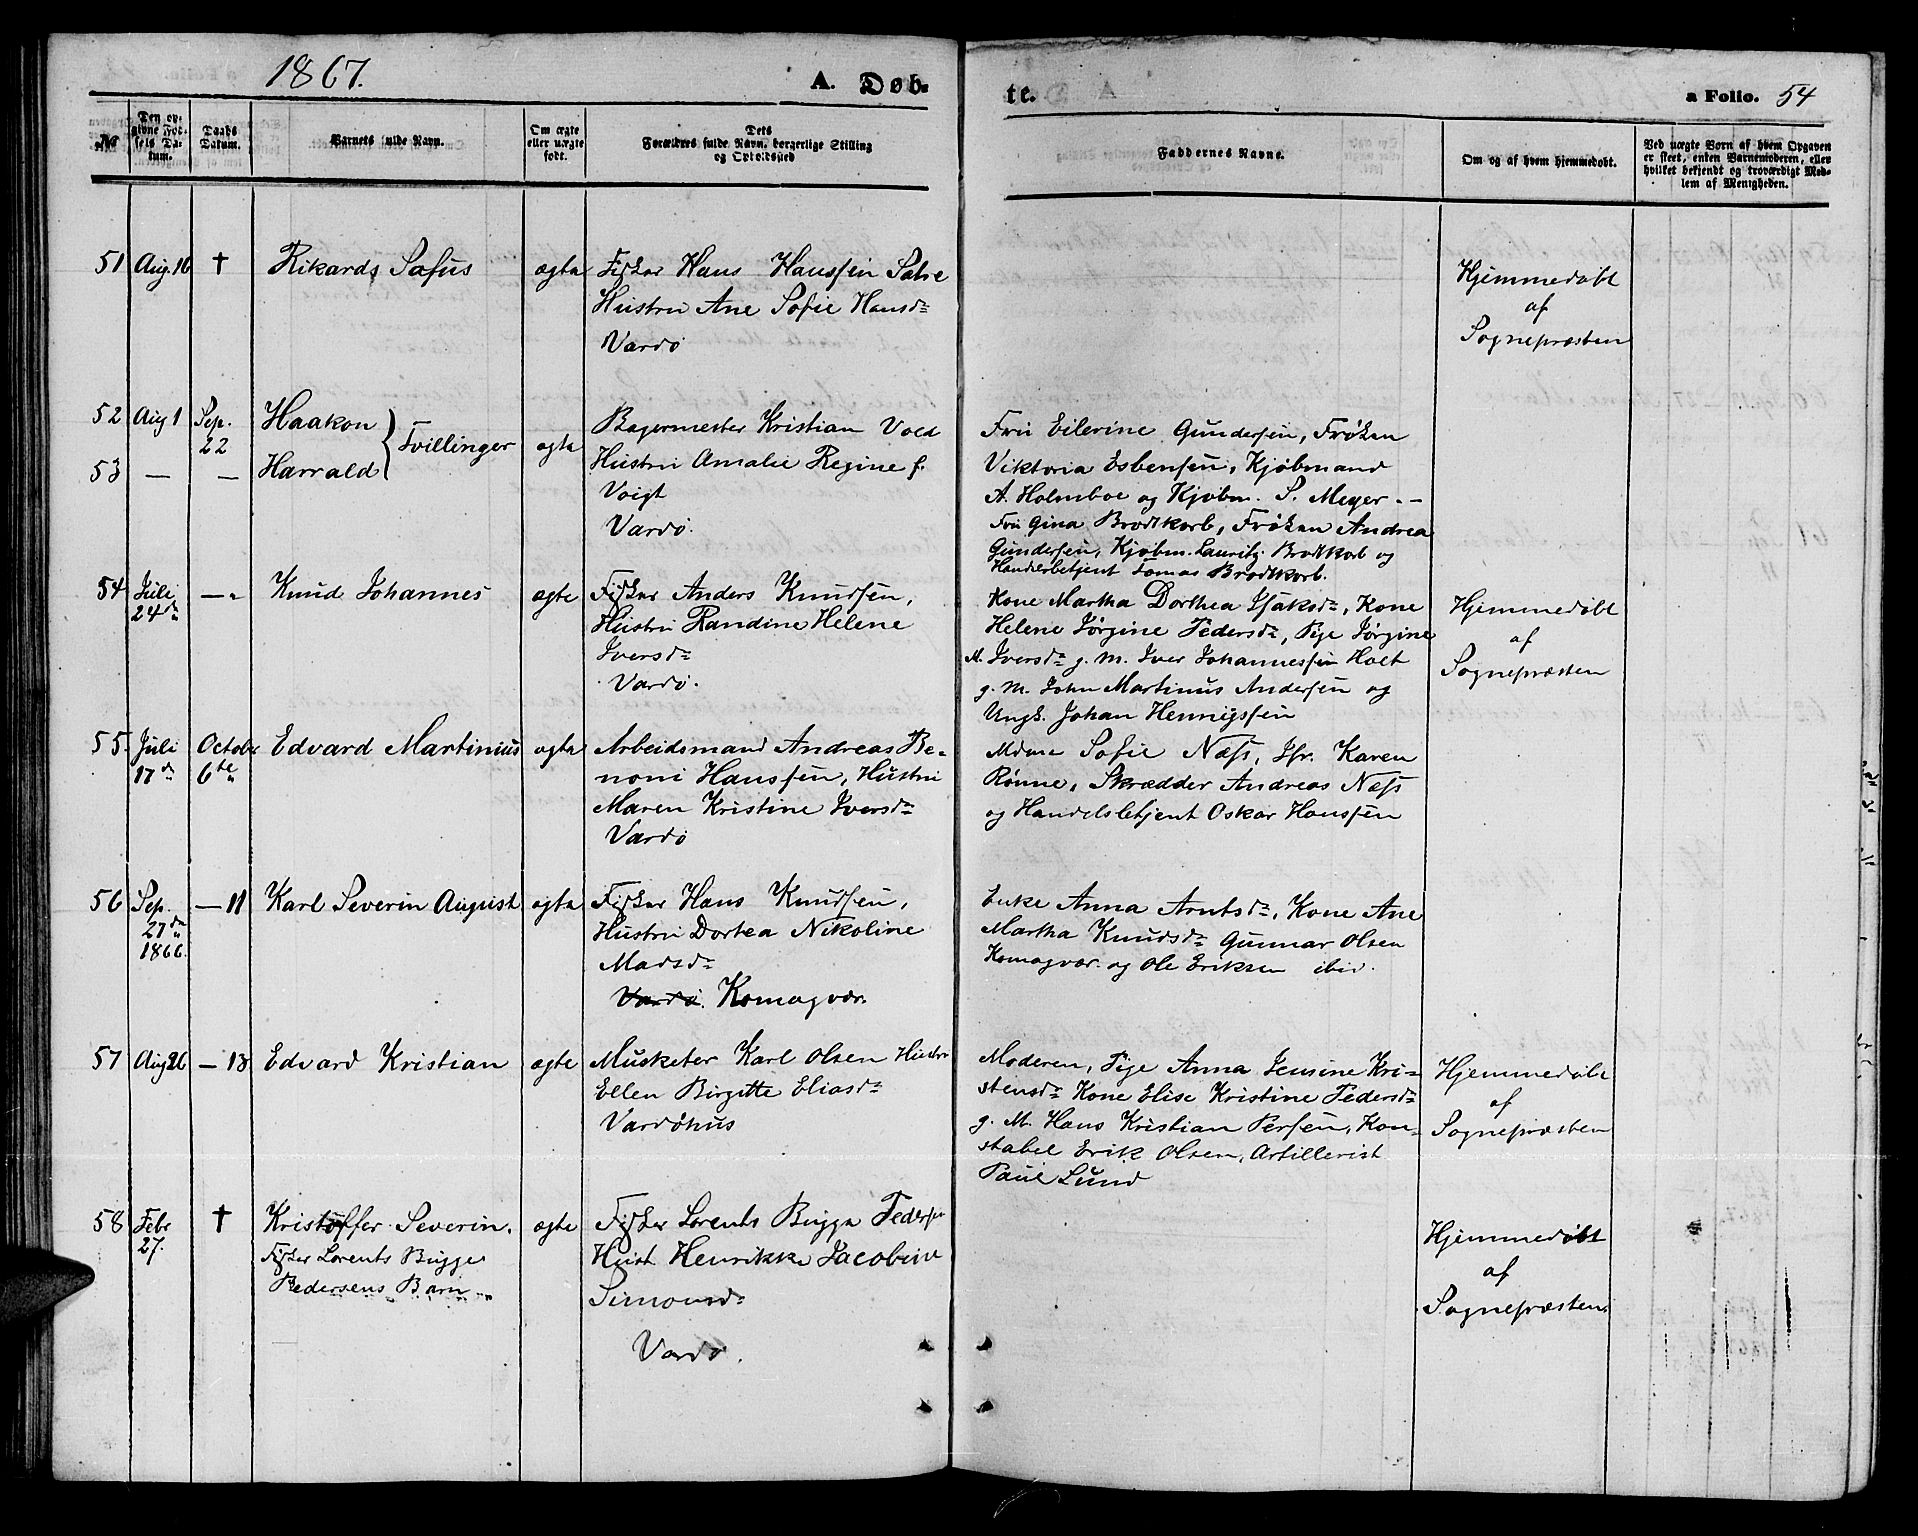 1867.
A. Døb-
te.
a Folio. 54
No
Den op-
givne Fød-
sels Da-
tum.
Daabs
Datum.
Barnets fulde Navn.
Om ægte
eller uægte
født.
Dets
Forældres fulde Navn, borgerlige Stilling
og Opholdssted
Faddernes Navne.
Om og af hvem hjemmedøbt.
Ved uægte Børn af hvem Opgaven
er skeet, enten Barnemoderen, eller
hvilket bekjendt og troværdigt Med-
lem af Menigheden.
51 Aug. 16 † Rikards Safus ægte
Fisker Hans Hanssen
Hustru Ane Sofie Hansd.
Vardö
Hjemmedøbt
af
Sognepræsten
52 Aug 1 Sep. 22 Haakon
53 — — Harrald
Tvillinger ægte
Bagermester Kristian Vold
Hustru Amalie Regine f.
Voigt
Vardö.
Fru Eilerine Gundersen, Frøken
Viktoria Esbensen, Kjøbmand
A. Holmboe og Kjøbm. P. Meyer. –
Fru Gina Brodtkorb, Frøken Andrea
Gundersen, Kjøbm. Lauritz Brodtkorb og
Handelsbetjent Tomas Brodtkorb.
54 Juli 24de —„ Knud Johannes ægte
Fisker Anders Knudsen,
Hustru Randine Helene
Iversd.
Vardö.
Kone Martha Dorthea Isaksd., Kone
Helene Jørgine Pedersd., Pige Jørgine
M. Iversd. g. M. Iver Johannessen Holt
g. M. John Martinus Andersen og
Ungk. Johan Henrigsen
Hjemmedøbt
af
Sognepræsten
55. Juli 17de October 6te Edvard Martinius ægte
Arbeidsmand Andreas Be-
noni Hanssen, Hustru
Maren Kristine Iversd.
Vardö
Mdme Sofie Næss, Jfr. Karen
Rönne, Skrædder Andreas Næss
og Handelsbetjent Oskar Hanssen
56 Sep. 27de 1866. — 11 Karl Severin August ægte
Fisker Hans Knudsen,
Hustru Dortea Nikoline
Madsd.
Vardö. Komagvær.
Enke Anna Arntsd., Kone Ane
Martha Knudsd. Gunnar Olsen
Komagvær. og Ole Eriksen ibid.
57 Aug 26 — 13 Edvard Kristian ægte
Musketer Karl Olsen Hustru
Ellen Birgitte Eliasd.
Vardöhus
Moderen, Pige Anna Jensine Kri-
stensd. Kone Elise Kristine Pedersd.
g. M. Hans Kristian Persen, Kon-
stabel Erik Olsen, Artillerist
Paul Lund
Hjemmedøbt
af
Sognepræsten
58 Febr 27. † Kristoffer Severin.
Fisker Lorents Bugge
Pedersens Barn ægte
Fisker Lorents Bugge Pedersen
Hust Henrikke Jacobine
Simonsd.
Vardö.
Hjemmedøbt
af
Sognepræsten.